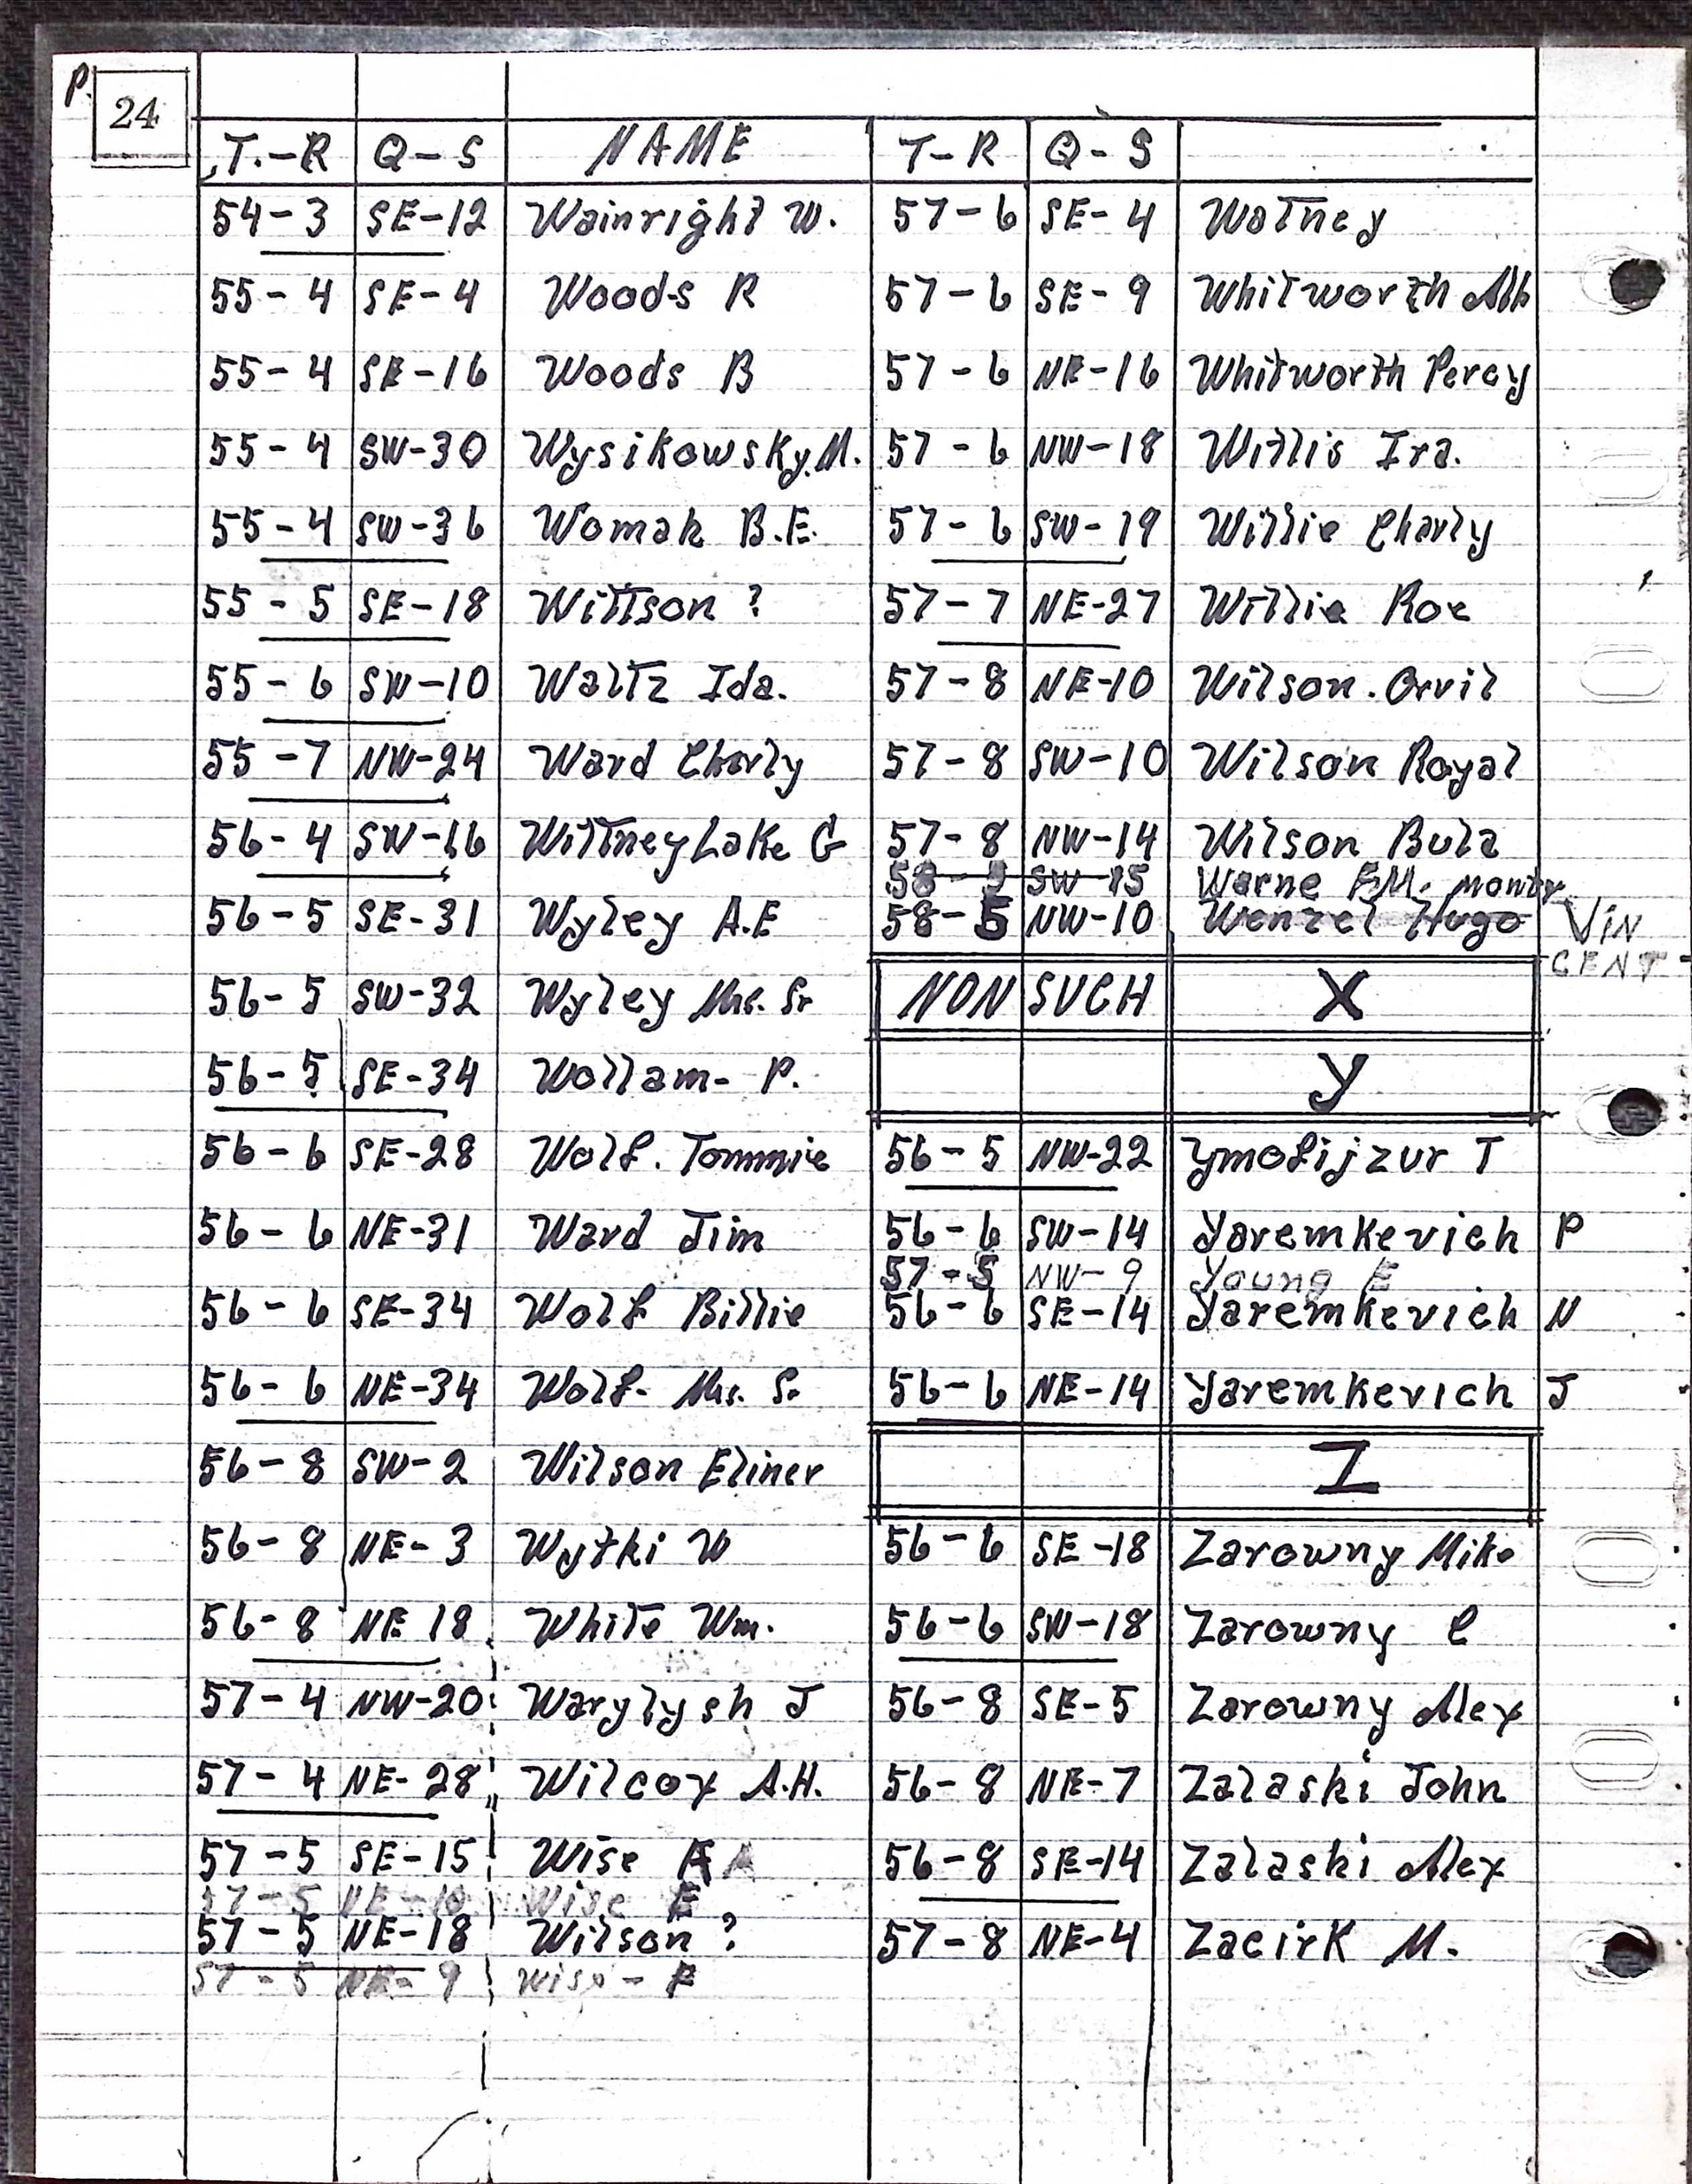 P. 24
T.-R Q-S NAME T-R Q-S
54-3 SE-12 Wainright W.
55-4 SE-4 Woods R
55-4 SE-16 Woods B
55-4 SW-30 Wysikowsky.M.
55-4 SW-36 Womak B.E.
55-5 SE-18 Wittson ?
55-6 SW-10 Waltz Ida.
55-7 NW-24 Ward Charly
56-4 SW-16 Wittney Lake G
56-5 SE-31 Wyley A.E
56-5 SW-32 Wyley Mrs. Sr
56-5 SE-34 Wollam- P.
56-6 SE-28 Wolf. Tommie
56-6 NE-31 Ward Jim
56-6 SE-34 Wolf Billie
56-6 NE-34 Wolf- Mrs. Sr
56-8 SW-2 Wilson Eliner
56-8 NE-3 Wytki W
56-8 NE 18 White Wm.
57-4 NW-20 Warylysh J
57-4 NE-28 Wilcox A.H.
57-5 SE-15 Wise A
57-5 NE- Wise E
57-5 NE-18 Wilson ?
57-5 NE-9 Wise-
57-6 SE-4 Wotney
57-6 SE-9 Whitworth Alb
57-6 NE-16 Whitworth Percy
57-6 NW-18 Willis Ira.
57-6 SW-19 Willie Charly
57-7 NE-27 Willie Roe
57-8 NE-10 Wilson. Orvil
57-8 SW-10 Wilson Royal
57-8 NW-14 Wilson Bula
58-5 SW-15 Warne B.M.
58-5 NW-10 Wenzel Hugo VIN
CENT
NON SUCH X
Y
56-5 NW-22 Ymofijzur T
56-6 SW-14 Yaremkevich P
57-5 NW-9 Young E
56-6 SE-14 Yaremkevich N
56-6 NE-14 Yaremkevich J
Z
56-6 SE-18 Zarowny Mike
56-6 SW-18 Zarowny C
56-8 SE-5 Zarowny Alex
56-8 NE-7 Zalaski John
56-8 SE-14 Zalaski Alex
57-8 NE-4 Zacirk M.